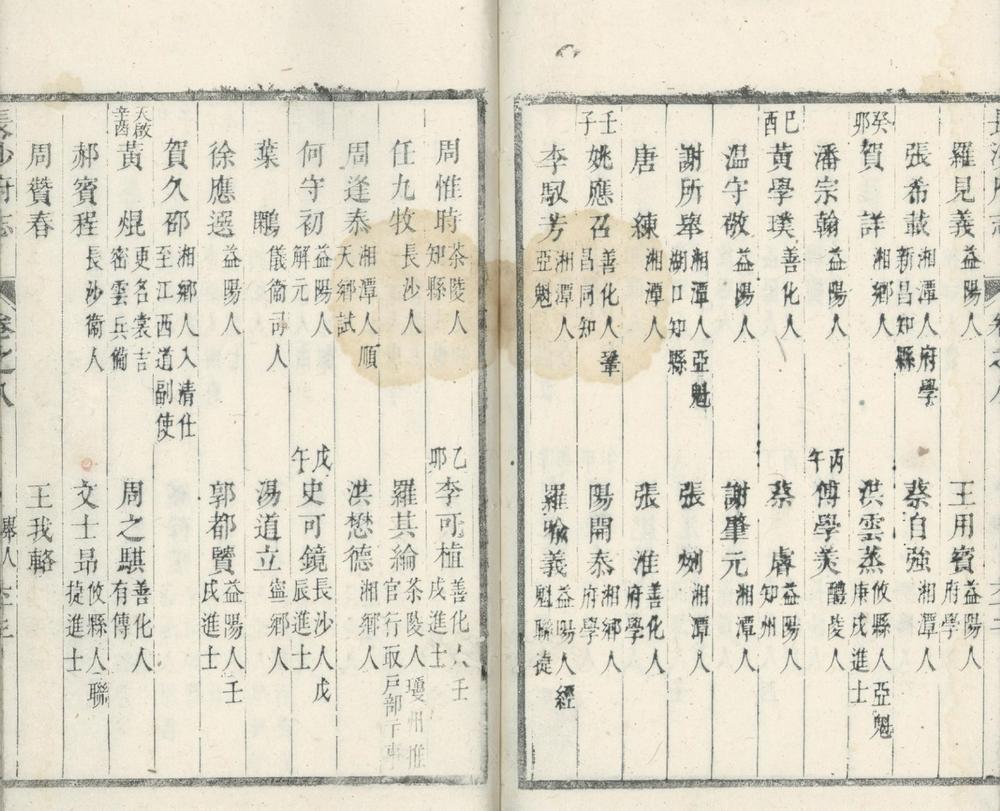 羅見義 益陽人
王用賓 益陽人府學
張希載 湘潭人府學新昌知縣
蔡自強 湘潭人
癸卯 賀詳 湘鄉人
洪雲蒸 攸縣人亞魁庚戌進士
潘宗翰 益陽人
丙午 傅學美 醴陵人
己酉 黃學璞 善化人
蔡膚 益陽人知州
温守敬 益陽人
謝肇元 湘潭人
謝所舉 湘潭人亞魁湖口知縣
張 湘潭人
唐練 湘潭人
張淮 善化人府學
壬子 姚應召 善化人鞏昌同知
陽開泰 湘鄉人府學
李馭芳 湘潭人亞魁
羅喻義 益陽人經魁聯捷
周惟時 茶陵人知縣
乙卯 李可植 善化人壬戌進士
任九牧 長沙人
羅其綸 茶陵人瓊州推官行取戶部主事
周逢泰 湘潭人順天鄉試
洪懋德 湘鄉人
何守初 益陽人解元
戊午 史可鏡 長沙人戊辰進士
葉 儀衞司人
湯道立 寧鄉人
徐應選 益陽人
郭都賢 益陽人壬戌進士
賀久邵 湘鄉人入清仕至江西道副使
天啟辛酉 黃焜 更名裳吉密雲兵備
周之騏 善化人有傳
郝賓程 長沙衞人
文士昂 攸縣人聯捷進士
周贊春
王我輅
卷之八
舉人